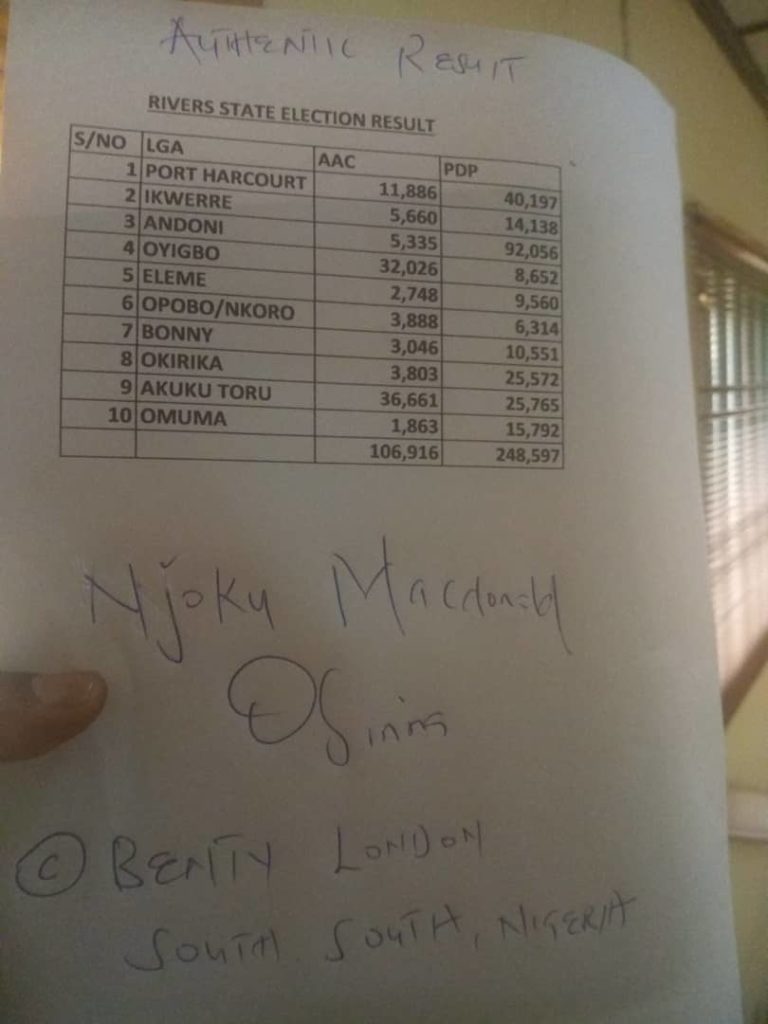 AUTHENTIC RESULT
RIVERS STATE ELECTION RESULT
S/NO LGA AAC PDP
1 PORT HARCOURT 11,886 40,197
2 IKWERRE 5,660 14,138
3 ANDONI 5,335 92,056
4 OYIGBO 32,026 8,652
5 ELEME 2,748 9,560
6 OPOBO/NKORO 3,888 6,314
7 BONNY 3,046 10,551
8 OKIRIKA 3,803 25,572
9 AKUKU TORU 36,661 25,765
10 OMUMA 1,863 15,792
106,916 248,597
Njoku Macdonald
© BENTY LONDON
SOUTH SOUTH, NIGERIA